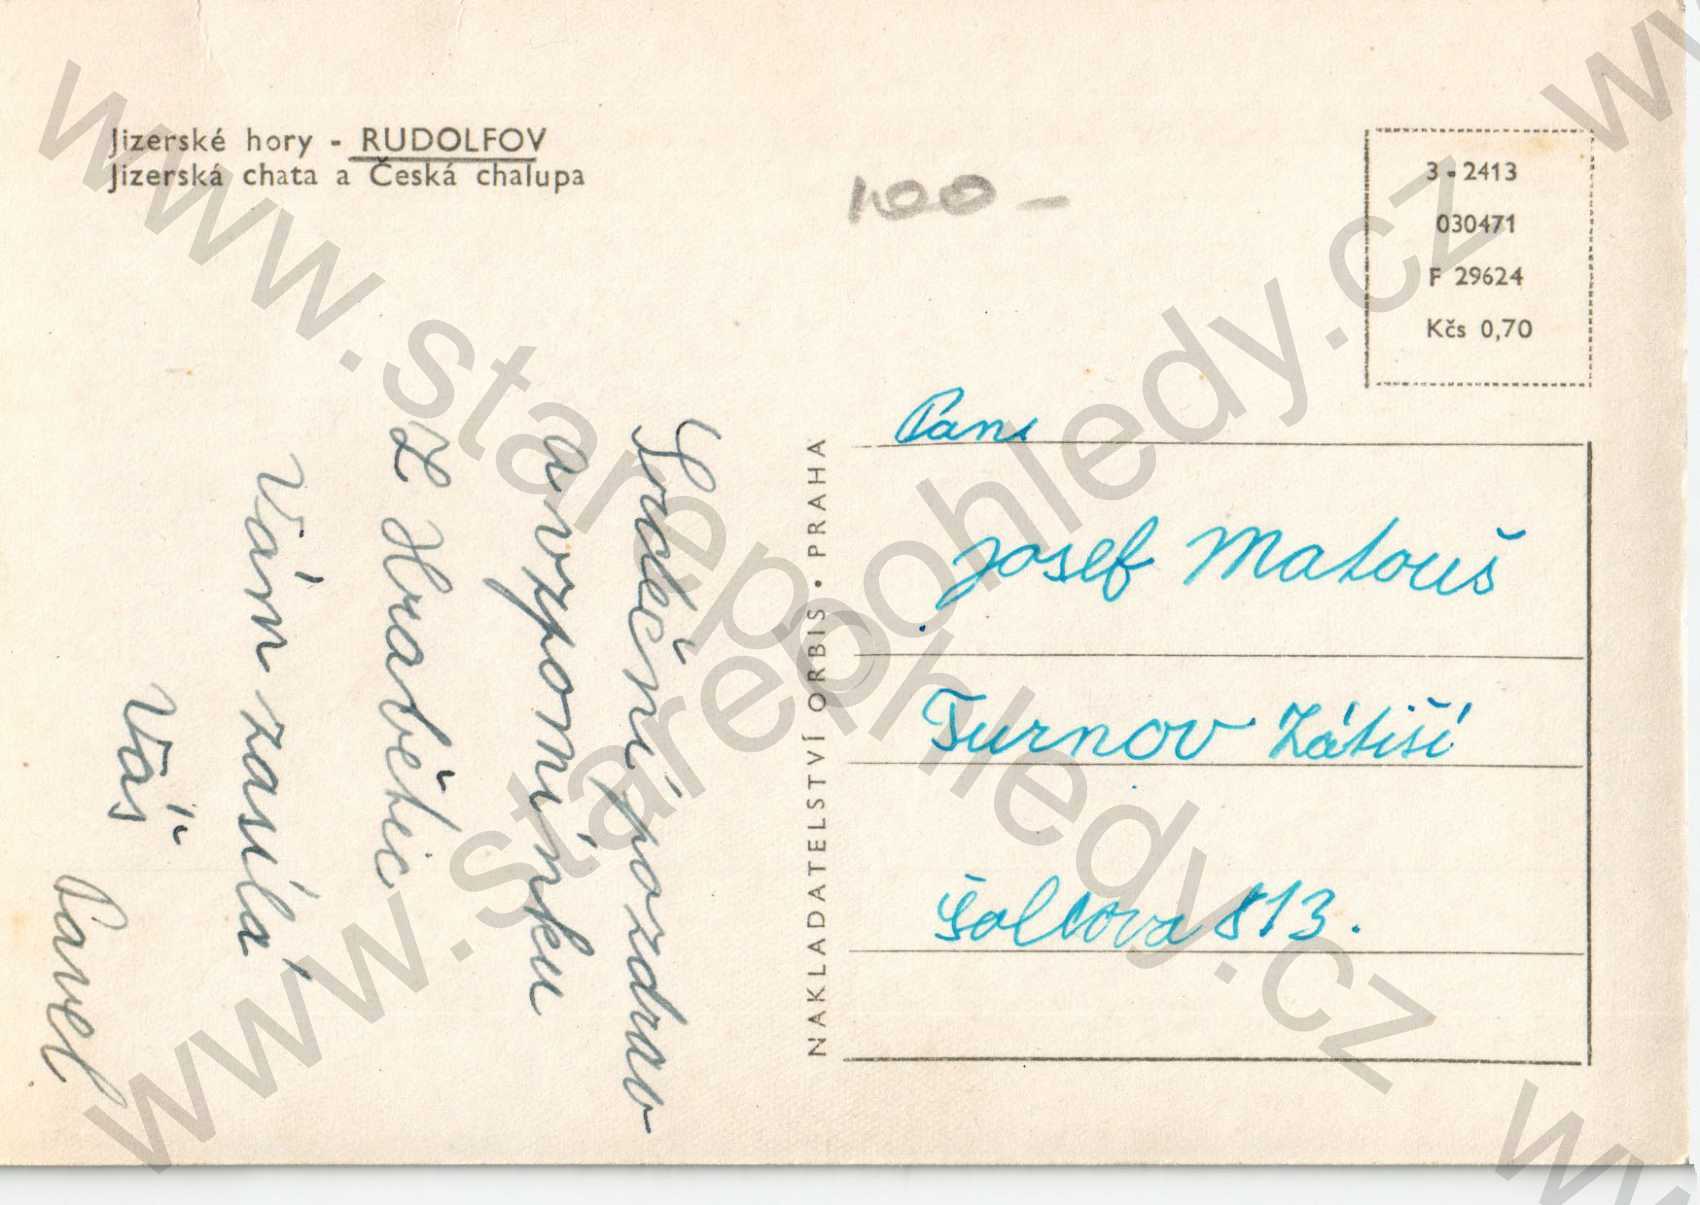 Jizerské hory - RUDOLFOV
Jizerská chata a Česká chalupa
100 -
3 - 2413
030471
F 29624
Kčs 0,70
Srdeční pozdrav
a vzpomínku
z Hrabětic
Vám zasílá
Váš
Pavel
NAKLADATELSTVÍ ORBIS • PRAHA
Pan
Josef Matouš
Turnov Zátiší
Šolcova 813.
www.starepohledy.cz
www.starepohledy.cz